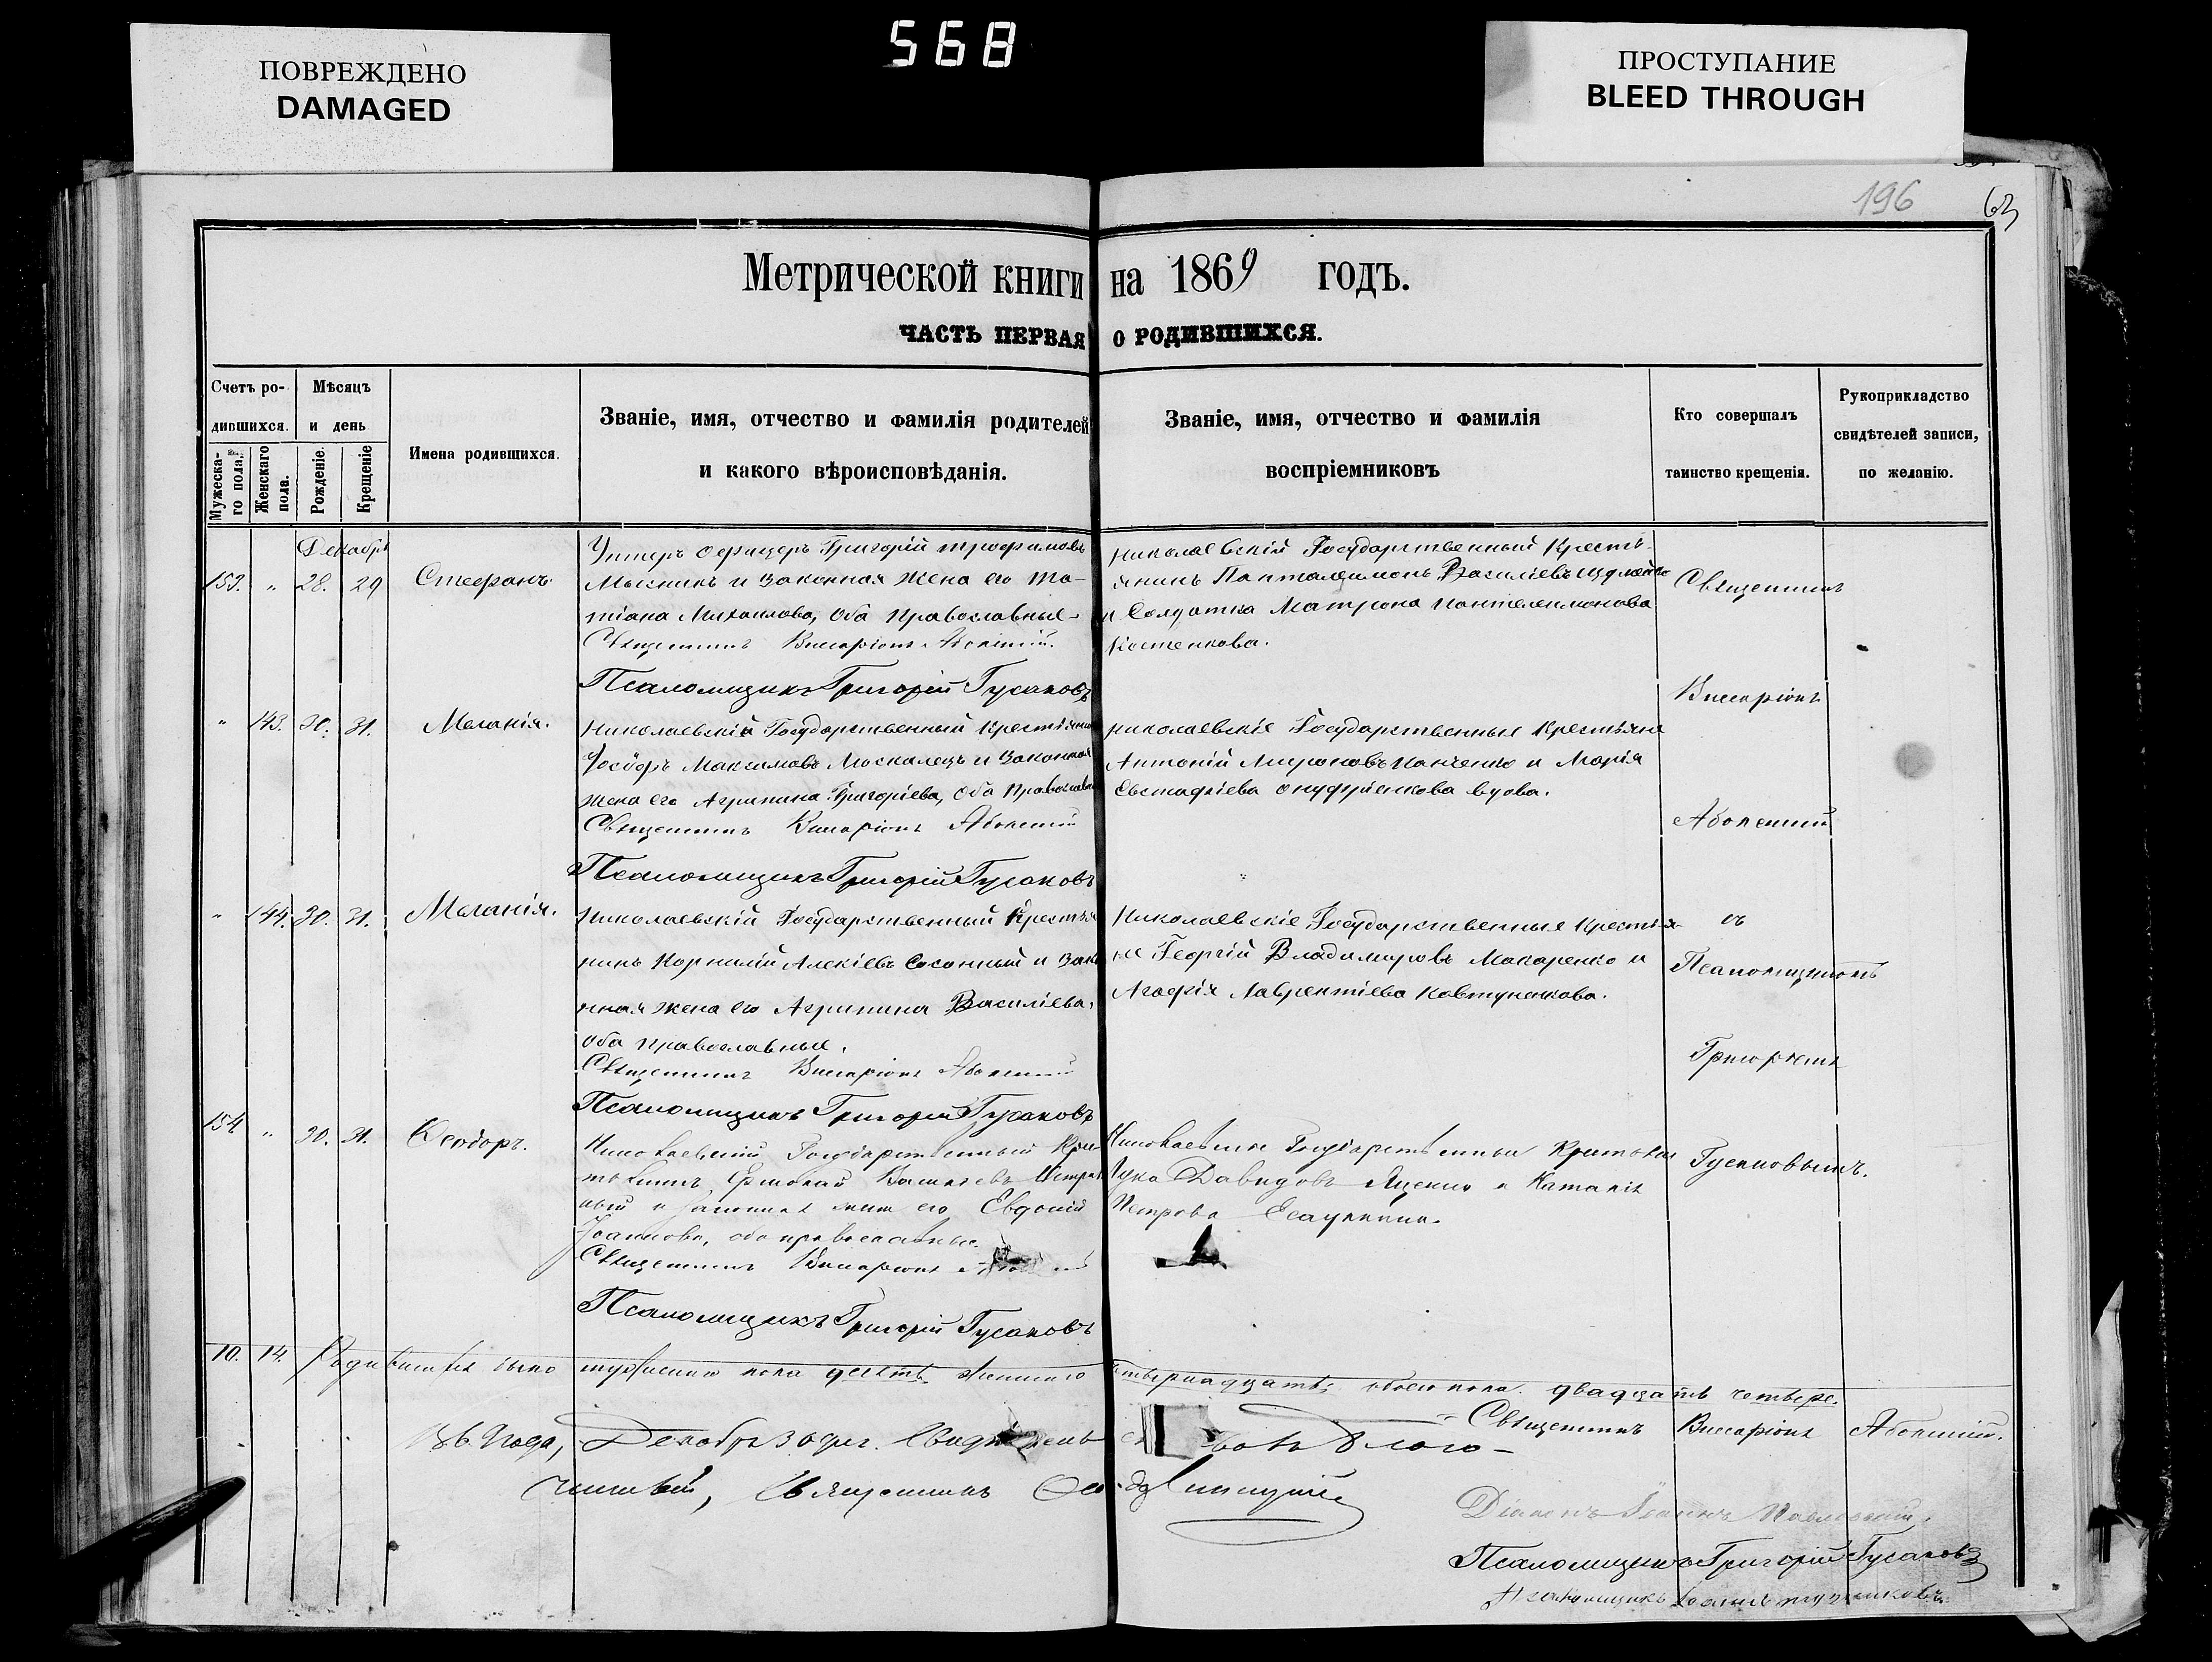 ПОВРЕЖДЕНО
DAMAGED
568
ПРОСТУПАНИЕ
BLEED THROUGH
196
63
Метрической книги на 1869 годъ.
ЧАСТЬ ПЕРВАЯ О РОДИВШИХСЯ.
Счетъ родившихся.
Мужескаго пола.
Женскаго пола.
Мѣсяцъ и день
Рожденіе.
Крещеніе
Имена родившихся.
Званіе, имя, отчество и фамилія родителей
и какого вѣроисповѣданія.
Званіе, имя, отчество и фамилія
воспріемниковъ
Кто совершалъ
таинство крещенія.
Рукоприкладство
свидѣтелей записи,
по желанію.
Декабрь
153. " 28. 29 Стефанъ.
Унтеръ офицеръ Григорій Трофимовъ
Мысникъ и Законная Жена его Та-
тіана Михаилова, Оба Православные
Священникъ Виссаріонъ
Псаломщикъ Григорій Гусаковъ
Николаевскій Государственный Кресть-
янинъ Панталеимонъ Василіевъ
и Солдатка Матрона Пантелеимонова
Костенкова.
Священникъ
Виссаріонъ
" 143. 30. 31. Меланія.
Николаевскій Государственный Крестьянинъ
Іосифъ Максимовъ Москалецъ и Законная
Жена его Агрипина Григоріева, Оба Православные
Священникъ Виссаріонъ
Псаломщикъ Григорій Гусаковъ
Николаевскіе Государственные Крестьяне
Антоній Мироновъ Панченко и Марія
Евстафіева Онуфріенкова вдова.
" 144. 30. 31. Меланія.
Николаевскій Государственный Крестья
нинъ Корнилій Алексіевъ и Зако
нная Жена его Агрипина Василіева,
Оба Православные.
Священникъ Виссаріонъ
Псаломщикъ Григорій Гусаковъ
Николаевскіе Государственные Крестья-
не Георгій Владимировъ Макаренко и
Агафія Лаврентіева Ковтуненкова.
съ
Псаломщикомъ
Григоріемъ
Гусаковымъ.
154 " 30. 31. Феодоръ.
Николаевскій Государственный Крес-
тьянинъ Ермолай Васильевъ
и законная жена его Евдокія
Іоаннова, оба православные.
Священникъ Виссаріонъ
Псаломщикъ Григорій Гусаковъ
Николаевскіе Государственные Крестьяне
Лука Давидовъ Яценко и Наталія
Петрова
10. 14. Родившихся было мужескаго пола десять женскаго четырнадцать; обоего пола двадцать четыре.
Священникъ Виссаріонъ
Декабря 30 дня. Благо-
чинный, Священникъ
Діаконъ Іоаннъ
Псаломщикъ Григорій Гусаковъ
Псаломщикъ